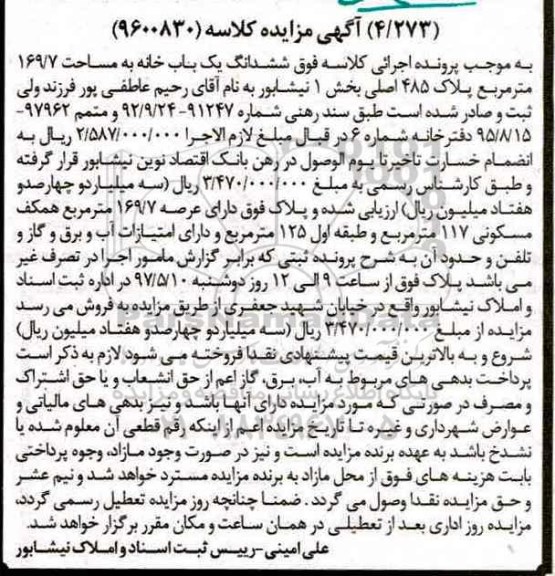 (۴/۲۷۳) آگهی مزایده کلاسه (۹۶۰۰۸۳۰)
به موجب پرونده اجرائی کلاسه فوق ششدانگ یک باب خانه به مساحت ۱۶۹/۷
مترمربع پلاک ۴۸۵ اصلی بخش ۱ نیشابور به نام آقای رحیم عاطفی پور فرزند ولی
ثبت و صادر شده است طبق سند رهنی شماره ۹۱۲۴۷-۹۲/۹/۲۴ و متمم ۹۷۹۶۲-
۹۵/۸/۱۵ دفترخانه شماره ۶ در قبال مبلغ لازم الاجرا ۲/۵۸۷/۰۰۰/۰۰۰ ریال به
انضمام خسارت تاخیر تا یوم الوصول در رهن بانک اقتصاد نوین نیشابور قرار گرفته
و طبق کارشناس رسمی به مبلغ ۳/۴۷۰/۰۰۰/۰۰۰ ریال (سه میلیارد و چهارصد و
هفتاد میلیون ریال) ارزیابی شده و پلاک فوق دارای عرصه ۱۶۹/۷ مترمربع همکف
مسکونی ۱۱۷ مترمربع و طبقه اول ۱۲۵ مترمربع و دارای امتیازات آب و برق و گاز و
تلفن و حدود آن به شرح پرونده ثبتی که برابر گزارش مامور اجرا در تصرف غیر
می باشد پلاک فوق از ساعت ۹ الی ۱۲ روز دوشنبه ۹۷/۵/۱۰ در اداره ثبت اسناد
و املاک نیشابور واقع در خیابان شهید جعفری از طریق مزایده به فروش می رسد
مزایده از مبلغ ۳/۴۷۰/۰۰۰/۰۰۰ ریال (سه میلیارد و چهارصد و هفتاد میلیون ریال)
شروع و به بالاترین قیمت پیشنهادی نقدا فروخته می شود لازم به ذکر است
پرداخت بدهی های مربوط به آب، برق، گاز اعم از حق انشعاب و یا حق اشتراک
و مصرف در صورتی که مورد مزایده دارای آنها باشد و نیز بدهی های مالیاتی و
عوارض شهرداری و غیره تا تاریخ مزایده اعم از اینکه رقم قطعی آن معلوم شده یا
نشدخ باشد به عهده برنده مزایده است و نیز در صورت وجود مازاد، وجوه پرداختی
بابت هزینه های فوق از محل مازاد به برنده مزایده مسترد خواهد شد و نیم عشر
و حق مزایده نقدا وصول می گردد . ضمنا چنانچه روز مزایده تعطیل رسمی گردد،
مزایده روز اداری بعد از تعطیلی در همان ساعت و مکان مقرر برگزار خواهد شد.
علی امینی-رییس ثبت اسناد و املاک نیشابور